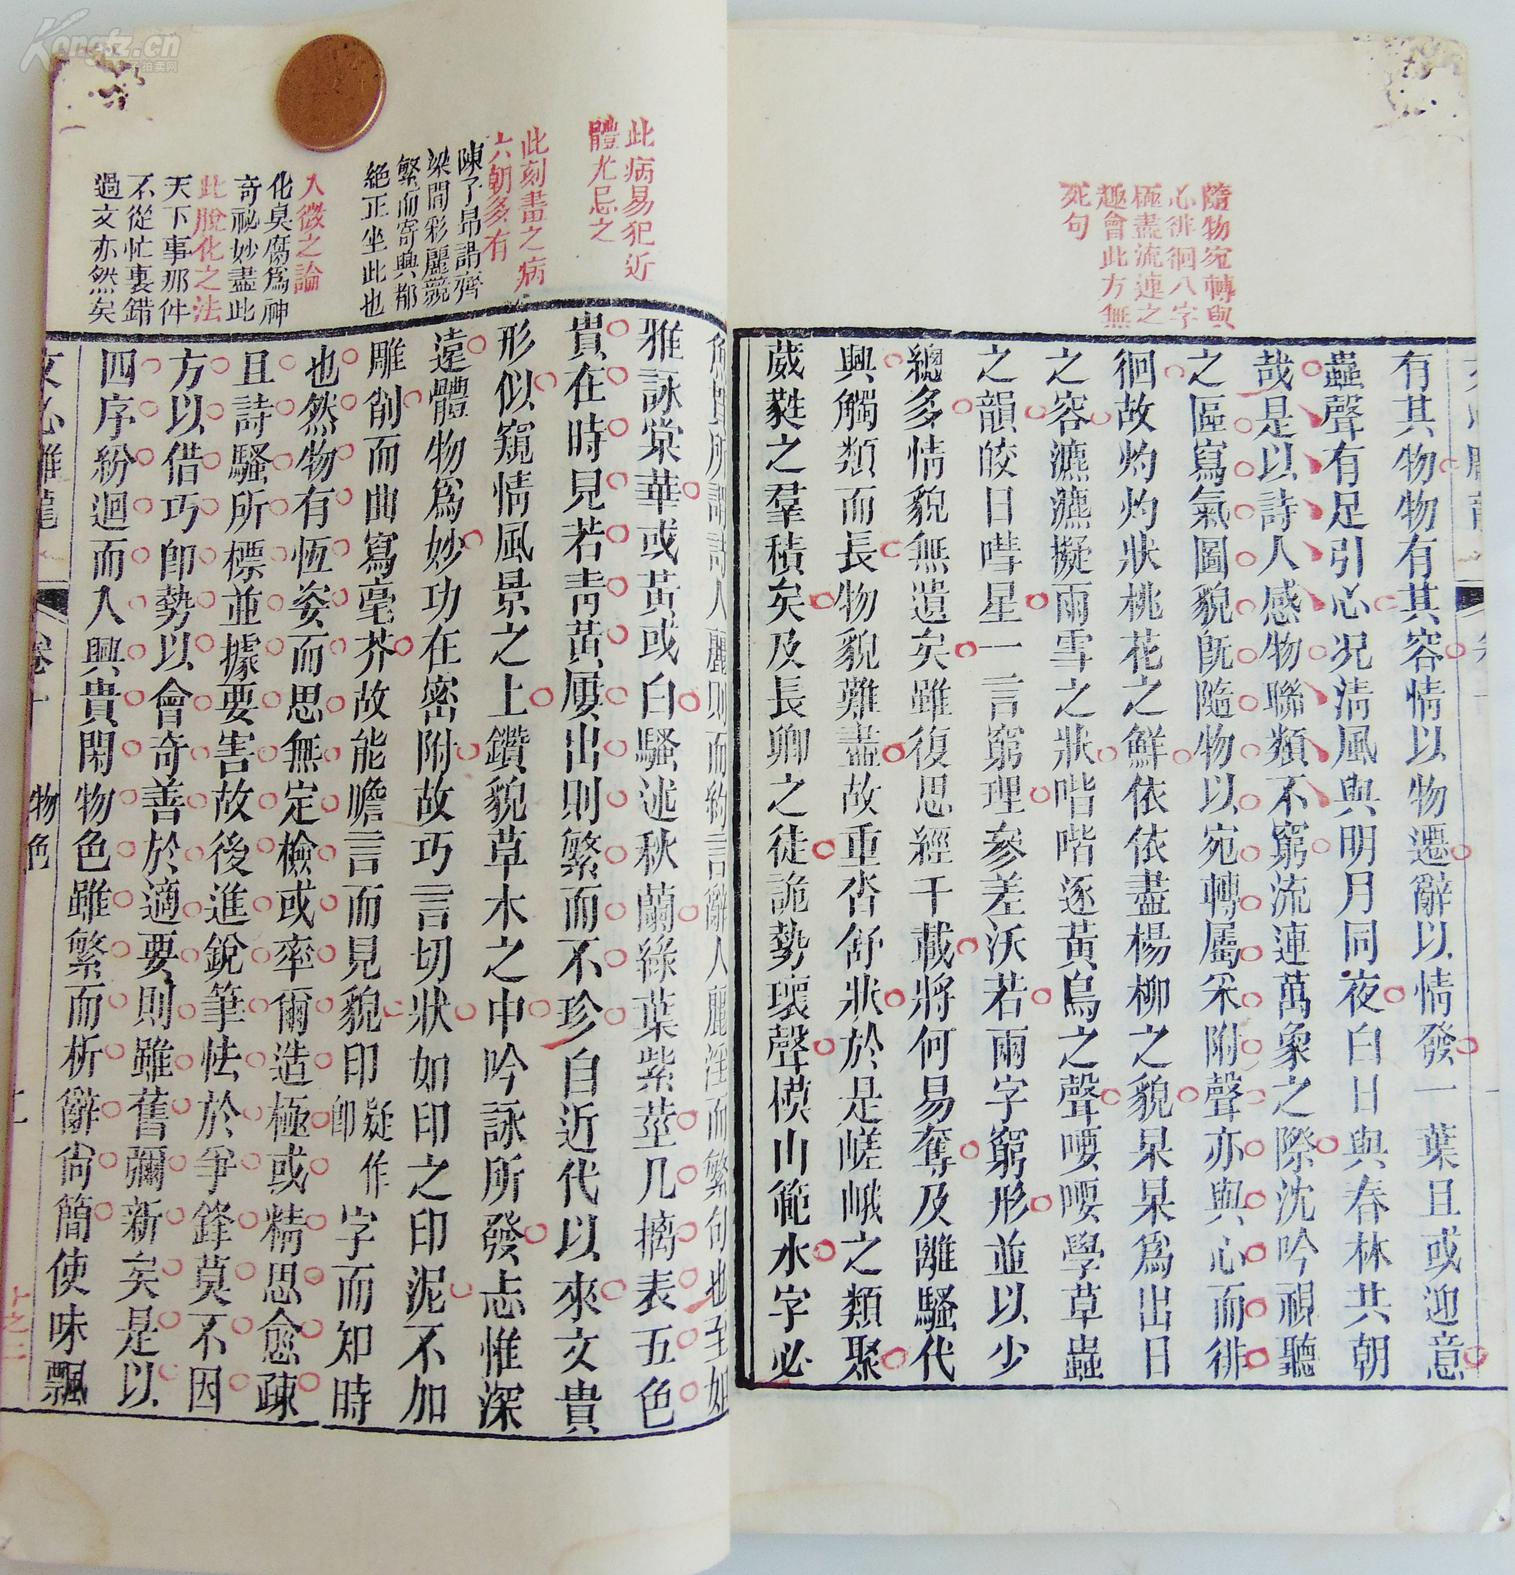 隨物宛轉與
心徘徊八字
極盡流連之
趣會此方無
死句
有其物物有其容情以物遷辭以情發一葉且或迎意
蟲聲有足引心况清風與明月同夜白日與春林共朝
哉是以詩人感物聯類不窮流連萬象之際沈吟視聽
之區寫氣圖貌旣隨物以宛轉屬采附聲亦與心而徘
徊故灼灼狀桃花之鮮依依盡楊柳之貌杲杲爲出日
之容瀌瀌擬雨雪之狀喈喈逐黃鳥之聲喓喓學草蟲
之韻皎日嘒星一言窮理參差沃若兩字窮形並以少
總多情貌無遺矣雖復思經千載將何易奪及離騷代
興觸類而長物貌難盡故重沓舒狀於是嵯峨之類聚
葳蕤之羣積矣及長卿之徒詭勢瓌聲模山範水字必
此病易犯近
體尤忌之
此刻畫之病
六朝多有
陳子昂謂齊
梁間彩麗競
繁而寄興都
絕正坐此也
入微之論
化臭腐爲神
奇祕妙盡此
此脫化之法
天下事那件
不從忙裏錯
過文亦然矣
所謂詩人麗則而約言辭人麗淫而繁句也至如
雅詠棠華或黃或白騷述秋蘭綠葉紫莖凡摛表五色
貴在時見若靑黃屢出則繁而不珍自近代以來文貴
形似窺情風景之上鑽貌草木之中吟詠所發志惟深
遠體物爲妙功在密附故巧言切狀如印之印泥不加
雕削而曲寫毫芥故能瞻言而見貌印疑作卽字而知時
也然物有恆姿而思無定檢或率爾造極或精思愈疎
且詩騷所標並據要害故後進銳筆怯於爭鋒莫不因
方以借巧卽勢以會奇善於適要則雖舊彌新矣是以
四序紛迴而入興貴閑物色雖繁而析辭尙簡使味飄
文心雕龍
卷十
物色